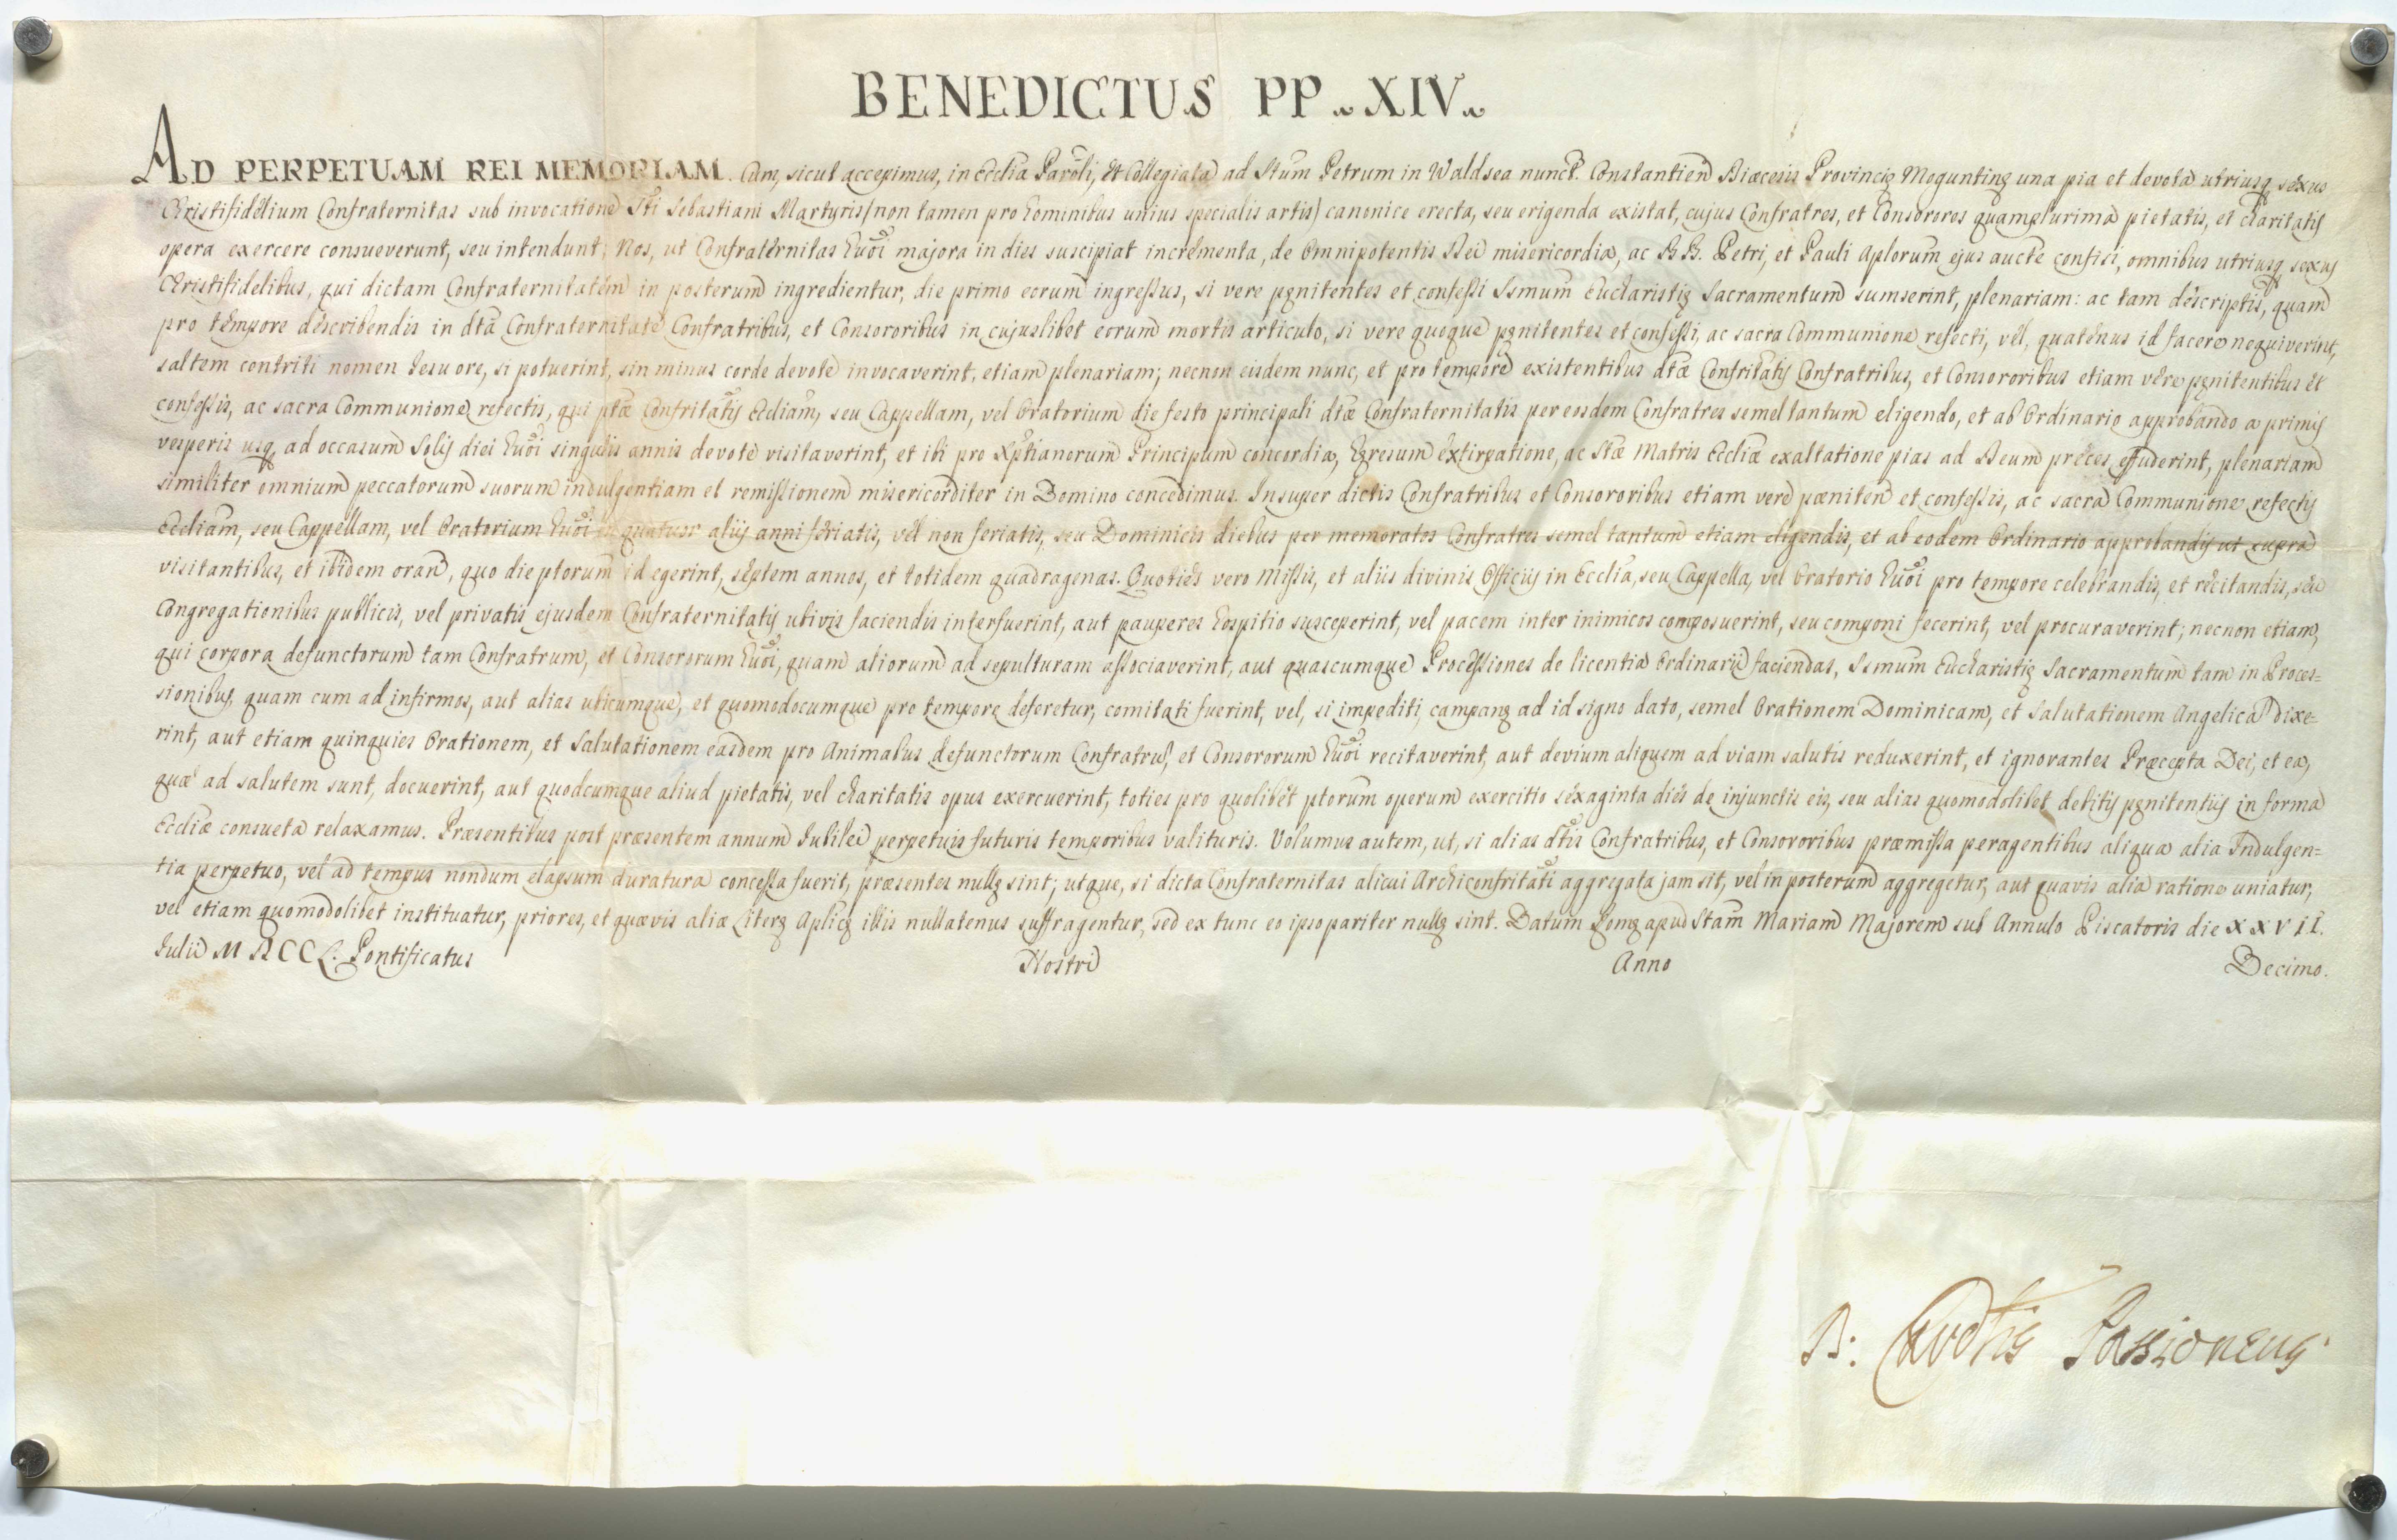 BENEDICTUS PP. XIV.
AD PERPETUAM REI MEMORIAM. Cum, sicut accepimus, in Ecclia Paroli, et Collegiata ad Stum Petrum in Waldsea nunct. Constantien Diœcesis Provincię Moguntinę una pia et devota utriusq sexus
Christifidelium Confraternitas sub invocatione Sti Sebastiani Martyris (non tamen pro hominibus unius specialis artis) canonice erecta, seu erigenda existat, cujus Confratres, et Consorores quamplurima pietatis, et charitatis
opera exercere consueverunt, seu intendunt; Nos, ut Confraternitas huôi majora in dies suscipiat incrementa, de Omnipotentis Dei misericordia, ac B.B. Petri, et Pauli Aplorum ejus aucte confisi, omnibus utriusq sexus
Christifidelibus, qui dictam Confraternitatem in posterum ingredientur, die primo eorum ingressus, si vere pęnitentes et confessi Ssmum Eucharistię Sacramentum sumserint, plenariam: ac tam descriptis, quam
pro tempore describendis in dta Confraternitate Confratribus, et Consororibus in cujuslibet eorum mortis articulo, si vere quoque pęnitentes et confessi, ac sacra Communione refecti, vel, quatenus id facere nequiverint,
saltem contriti nomen Jesu ore, si potuerint, sin minus corde devote invocaverint, etiam plenariam; necnon eisdem nunc, et pro tempore existentibus dtæ Confritatis Confratribus, et Consororibus etiam vere pęnitentibus et
confessis, ac sacra Communione refectis, qui ptæ Confritatis Eccliam, seu Cappellam, vel Oratorium die festo principali dtæ Confraternitatis per eosdem Confratres semel tantum eligendo, et ab Ordinario approbando a primis
vesperis usq ad occasum Solis diei huôi singulis annis devote visitaverint, et ibi pro Xptianorum Principum concordia, hęresum extirpatione, ac Stæ Matris Eccliæ exaltatione pias ad Deum preces effuderint, plenariam
similiter omnium peccatorum suorum indulgentiam et remissionem misericorditer in Domino concedimus. Insuper dictis Confratribus et Consororibus etiam vere pæniten et confessis, ac sacra Communione refectis
Eccliam, seu Cappellam, vel Oratorium huôi in quatuor aliis anni feriatis, vel non feriatis, seu Dominicis diebus per memoratos Confratres semel tantum etiam eligendis, et ab eodem Ordinario approbandis ut supra
visitantibus, et ibidem oran, quo die ptorum id egerint, septem annos, et totidem quadragenas. Quoties vero Missis, et aliis divinis Officiis in Ecclia, seu Cappella, vel Oratorio huôi pro tempore celebrandis, et recitandis, seu
Congregationibus publicis, vel privatis ejusdem Confraternitatis ubivis faciendis interfuerint, aut pauperes hospitio susceperint, vel pacem inter inimicos composuerint, seu componi fecerint, vel procuraverint; necnon etiam,
qui corpora defunctorum tam Confratrum, et Consororum huôi, quam aliorum ad sepulturam associaverint, aut quascumque Processiones de licentia Ordinarii faciendas, Ssmum Eucharistię Sacramentum tam in Proces=
sionibus, quam cum ad infirmos, aut alias ubicumque, et quomodocumque pro tempore deferetur, comitati fuerint, vel, si impediti, campanę ad id signo dato, semel Orationem Dominicam, et Salutationem Angelica dixe=
rint, aut etiam quinquies Orationem, et Salutationem easdem pro Animabus defunctorum Confratru, et Consororum huôi recitaverint, aut devium aliquem ad viam salutis reduxerint, et ignorantes Præcepta Dei, et ea,
quæ ad salutem sunt, docuerint, aut quodcumque aliud pietatis, vel charitatis opus exercuerint, toties pro quolibet ptorum operum exercitio sexaginta dies de injunctis eis, seu alias quomodolibet debitis pęnitentiis in forma
Eccliæ consueta relaxamus. Præsentibus post præsentem annum Jubilei perpetuis futuris temporibus valituris. Volumus autem, ut, si alias dtis Confratribus, et Consororibus præmissa peragentibus aliqua alia Indulgen=
tia perpetuo, vel ad tempus nondum elapsum duratura concessa fuerit, præsentes nullę sint; utque, si dicta Confraternitas alicui Archiconfritati aggregata jam sit, vel in posterum aggregetur, aut quavis alia ratione uniatur,
vel etiam quomodolibet instituatur, priores, et quævis aliæ Literę Aplicę illis nullatenus suffragentur, sed ex tunc eo ipso pariter nullę sint. Datum Romę apud Stam Mariam Majorem sub Annulo Piscatoris die XXVII.
Julii MDCCL. Pontificatus Nostri Anno Decimo.
D: Cardlis Passioneus